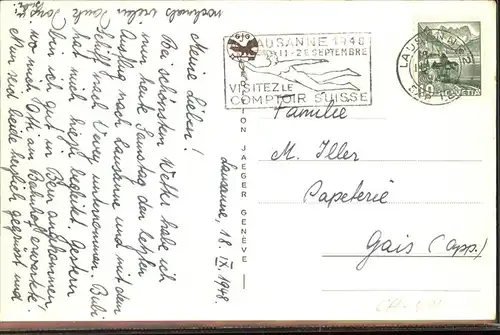 nochmals vielen Dank
Lausanne, 18. IX. 1948.
Meine Lieben!
Bei schönstem Wetter habe ich
nun heute Samstag den
Ausflug nach Lausanne und mit dem
Schiff nach Vevey unternommen. Bubi
hat mich begleitet. Gestern
bin ich gut in Bern angekommen,
wo mich Otti am Bahnhof erwartete.
Nun seid beide herzlich gegrüsst und
EDITION JAEGER GENÈVE
LAUSANNE 1948
11-26 SEPTEMBRE
VISITEZ LE
COMPTOIR SUISSE
LAUSANNE
10 HELVETIA
Familie
M. Iller
Papeterie
Gais (App.)